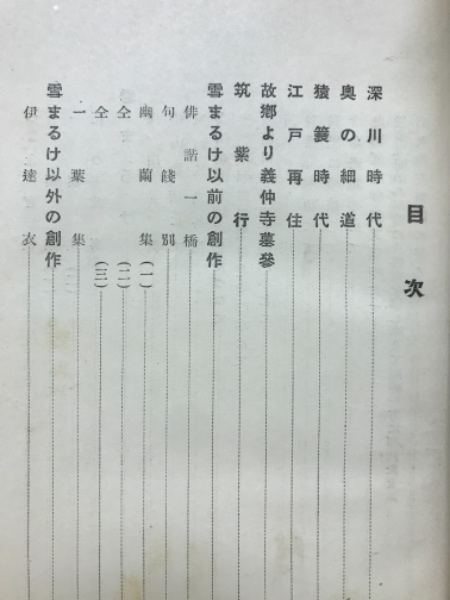 目次
深川時代
奥の細道
猿簑時代
江戸再住
故鄕より義仲寺墓參
筑紫行
雪まるけ以前の創作
俳諧一橋
句餞別
幽蘭集(一)
仝(二)
仝(三)
一葉集
雪まるけ以外の創作
伊達衣